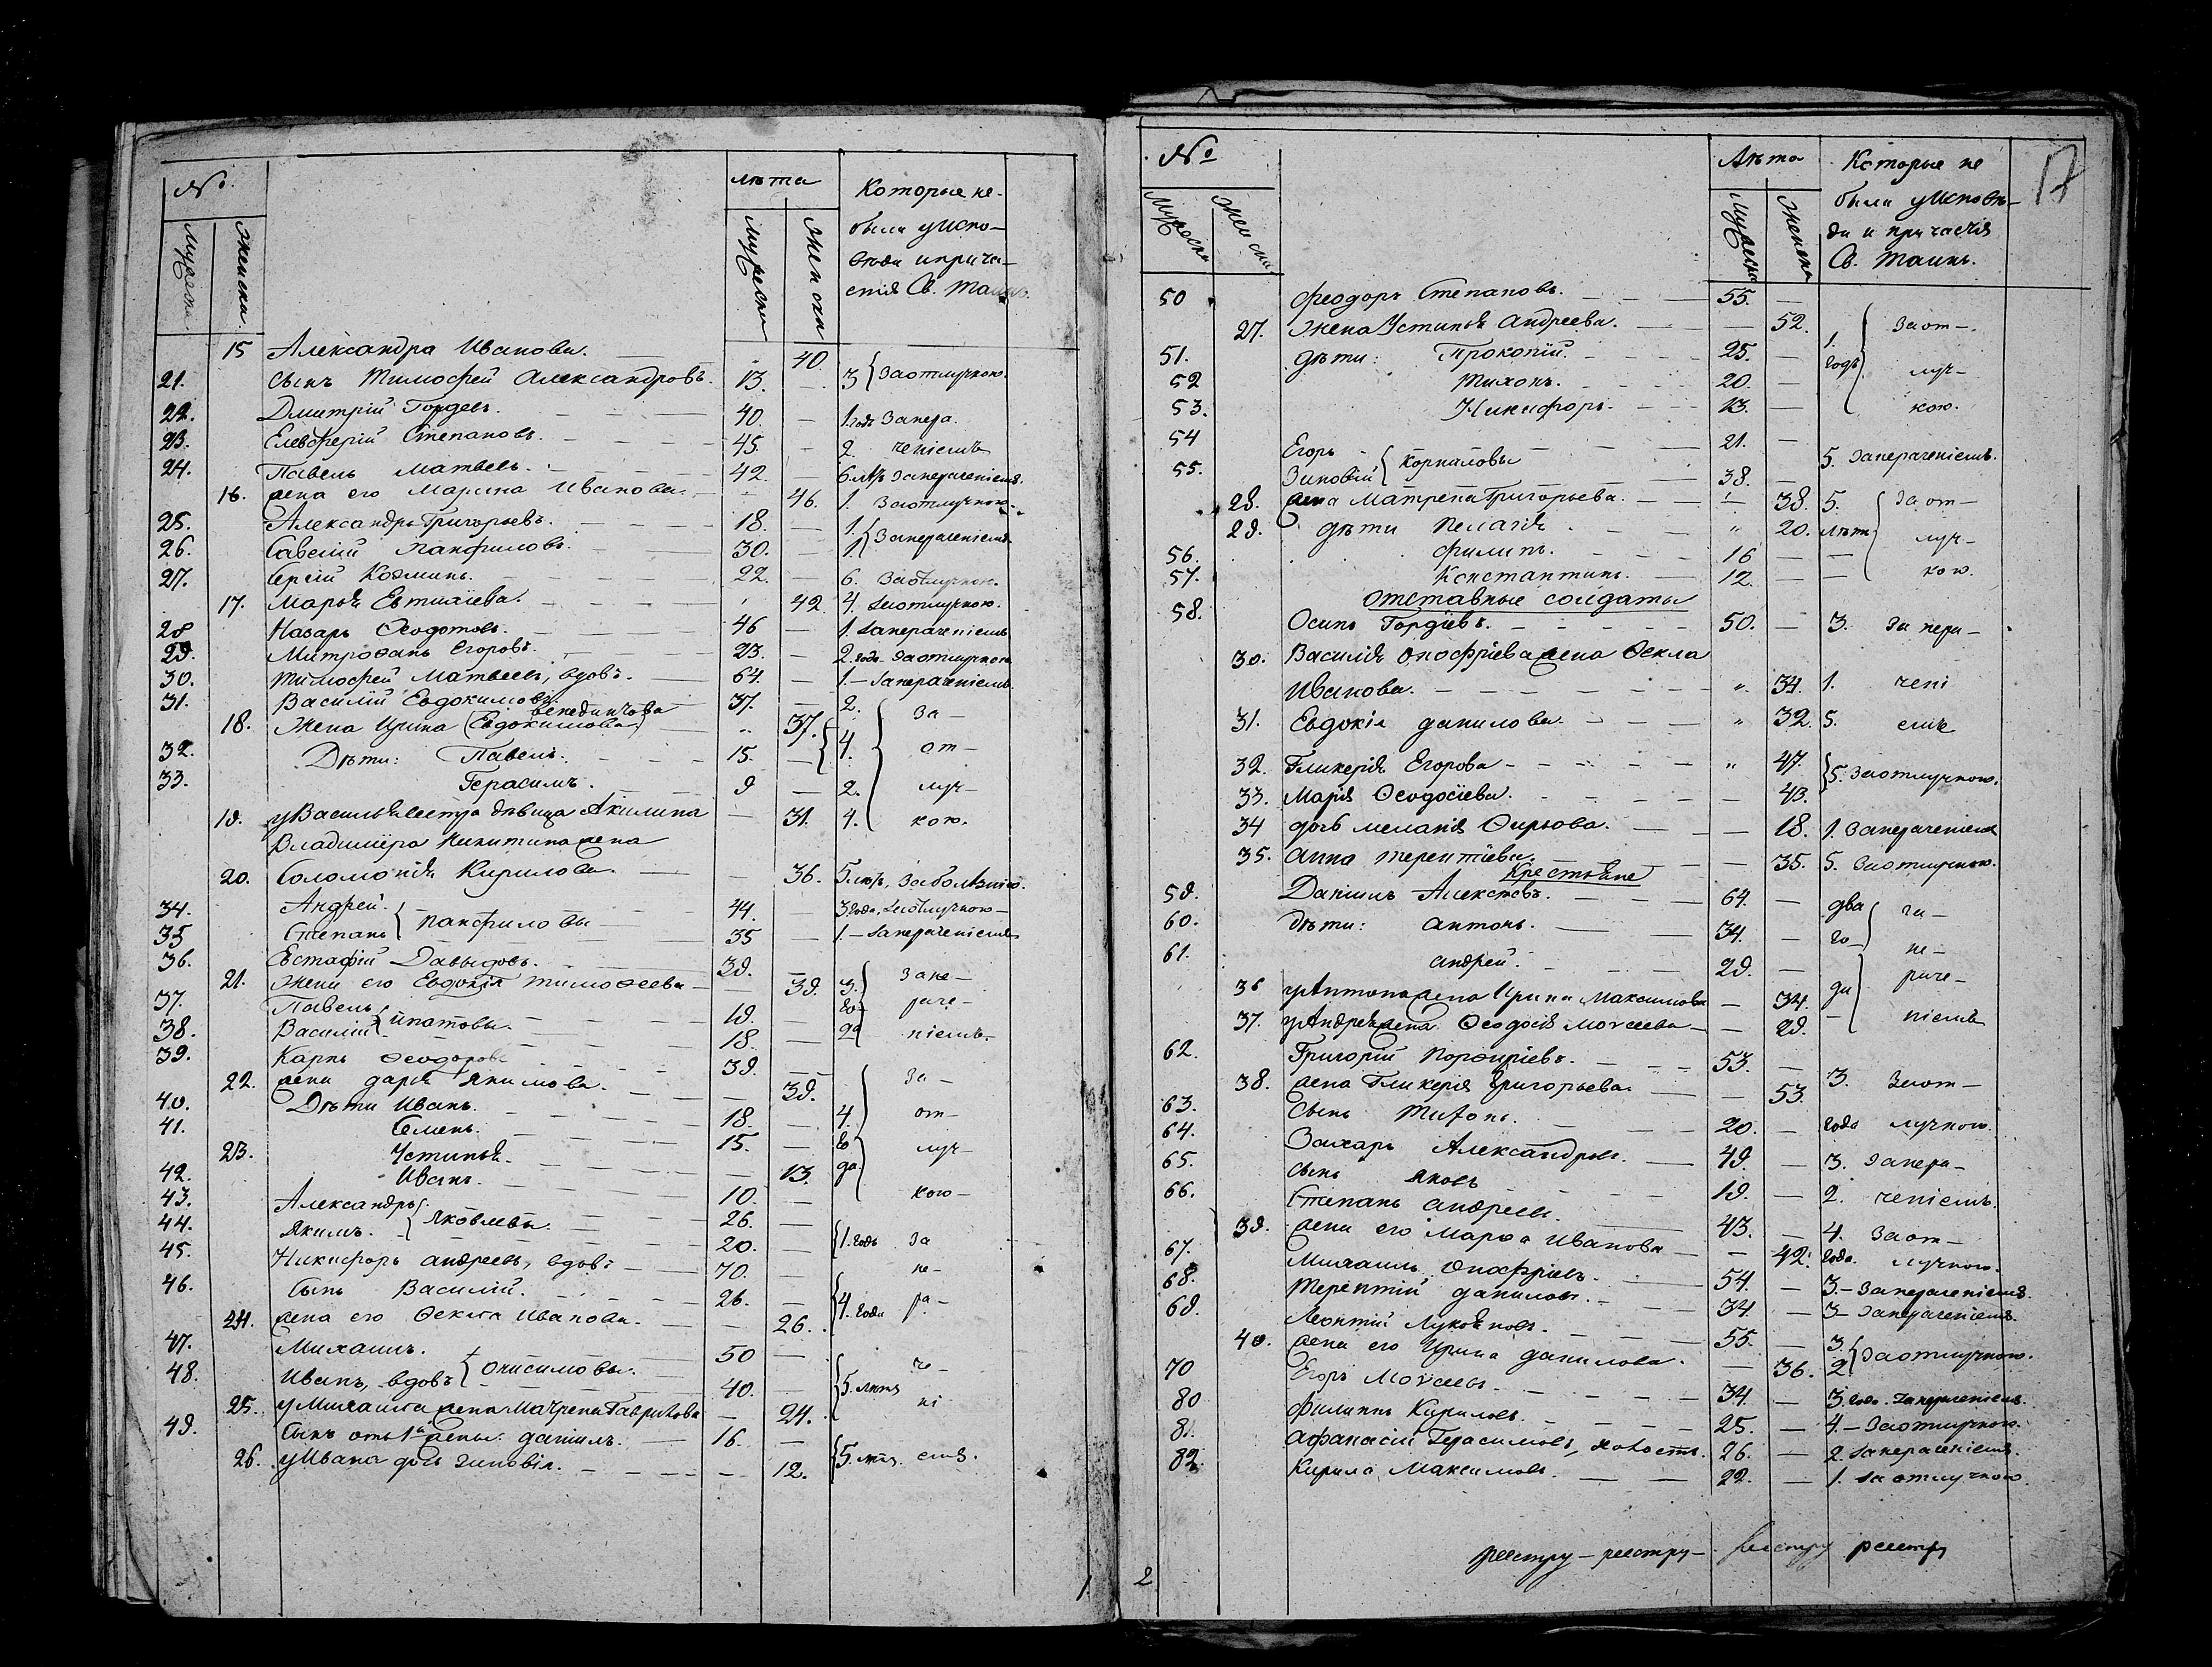 № Лѣта Которые не-
были у Испо-
вѣди и прича-
стія Св. Таинъ.
Мужески Женски Мужески Женски
15 Александра Иванова. 40
21. сынъ Тимофей Александровъ. 13. 3 За отлучкою.
22. Дмитрій Гордѣевъ. 40. 1 годъ За нера-
23. Елевферій Степановъ. 45. 2. ченіемъ
24. Павелъ Матвѣевъ. 42. 6 лѣтъ За нераченіемъ.
16. жена его Марина Иванова. 46. 1. За отлучкою.
25. Александръ Григорьевъ. 18. 1.
26. Савелій Панфиловъ. 30. 1. За нераченіемъ
27. Сергій Козминъ. 22. 6. За отлучкою.
17. Марья Евтихіева. 42 4. За отлучкою.
28 Назаръ Ѳеодотовъ. 46 1. За нераченіемъ
29. Митрофанъ Егоровъ. 23. 2. года За отлучкою
30. Тимофей Матвѣевъ, вдовъ. 64. 1. За нераченіемъ.
31. Василій Евдокимовъ. 37. 2. За-
18. Жена Ирина (Евдокимова) Венединтова 37. 4. от-
32. Дѣти: Павелъ. 15.
33. Герасимъ. 9 2. луч-
19. у Василья сестра дѣвица Акилина 31. 4. кою.
Владиміра Никитина жена
20. Соломонія Кирилова. 36. 5 лѣтъ, За болѣзнію.
34. Андрей. 44. 3 года, За отлучкою
35 Степанъ Панфиловы 35 1. За нераченіемъ
36. Естафій Давыдовъ. 39.
21. Жена его Евдокія Тимоѳеева 39. 3. За не-
37. Павелъ 19. го- раче-
38. Василій Ипатовы. 18. да ніемъ.
39. Карпъ Ѳеодоровъ 39.
22. жена Дарія Якимова. 39. За-
40. Дѣти Иванъ. 18. 4. от-
41. Семенъ. 15. го
23. Устинья. 13. да. луч-
42. Иванъ. 10. кою
43. Александръ 26.
44. Якимъ. Яковлевы. 20. 1. годъ За
45. Никифоръ Андреевъ, вдовъ 70. не-
46. Сынъ Василій. 26. 4. года ра-
24. жена его Ѳекла Иванова. 26.
47. Михаилъ. 50
48. Иванъ, вдовъ Онисимовы. 40. че-
25. у Михаила жена Матрена Гаврилова 24. 5. лѣтъ ні-
49. Сынъ отъ 1й жены. Даніилъ. 16.
26. у Ивана дочь Зиновія. 12. 5. лѣтъ емъ.
1.

17
№ Лѣта Которые не
были у Исповѣ-
ди и причастія
Св. Таинъ.
Мужески Женски Мужески Женски
50 Феодоръ Степановъ. 55.
27. Жена Устинья Андреева. 52. За от-
51. дѣти: Прокопій. 25. 1. годъ
52 Тихонъ. 20. луч-
53. Никифоръ. 13. кою.
54 Егоръ 21.
55. Зиновій Корниловы 38. 5. За нераченіемъ.
28. жена Матрена Григорьева. 38. 5. За от-
29. дѣти Пелагія 20. лѣтъ луч-
56. Филипъ. 16
57. Константинъ. 12. кою.
Отставные солдаты
58. Осипъ Гордіевъ. 50. 3. За нера-
30. Василія Онофріева жена Ѳекла
Иванова. 34. 1. чені
31. Евдокія Данилова. 32. 5. емъ
32. Гликерія Егорова 47.
33. Марія Ѳеодосіева. 43. 5. За отлучкою.
34 дочь Меланія Фирсова. 18. 1. За нераченіемъ
35. Анна Терентіева. 35. 5. За отлучкою.
Крестьяне
59. Даніилъ Алексѣевъ. 64. два За-
60. дѣти: Антонъ. 34. го- не-
61. Андрей. 29. раче-
36 у Антона жена Ирина Максимова 34. да
37. у Андрея жена Ѳеодосія Моѵсеева 29. ніемъ
62. Григорій Порфиріевъ. 53.
38. жена Гликерія Григорьева. 53. 3. За от-
63. Сынъ Тихонъ. 20. года лучкою.
64. Захаръ Александровъ. 49. 3. За нера-
65. сынъ Яковъ 19. 2. ченіемъ.
66. Степанъ Андреевъ. 43. 4. За от-
39. жена его Марѳа Иванова 42. года. лучкою.
67. Михаилъ Онофріевъ. 54. 3. За нераченіемъ.
68. Терентій Даниловъ. 34. 3. За нераченіемъ.
69. Леонтій Лукьяновъ. 55. 3.
40. жена его Ирина Данилова. 36. 2 За отлучкою.
70 Егоръ Моѵсеевъ. 34. 3 года. За нераченіемъ.
80 Филиппъ Кириловъ. 25. 4. За отлучкою.
81. Афанасій Герасимовъ, холостъ. 26. 2. За нераченіемъ.
82. Кирила Максимовъ. 22. 1. За отлучкою
реестру — реестру — реестру реестру
2